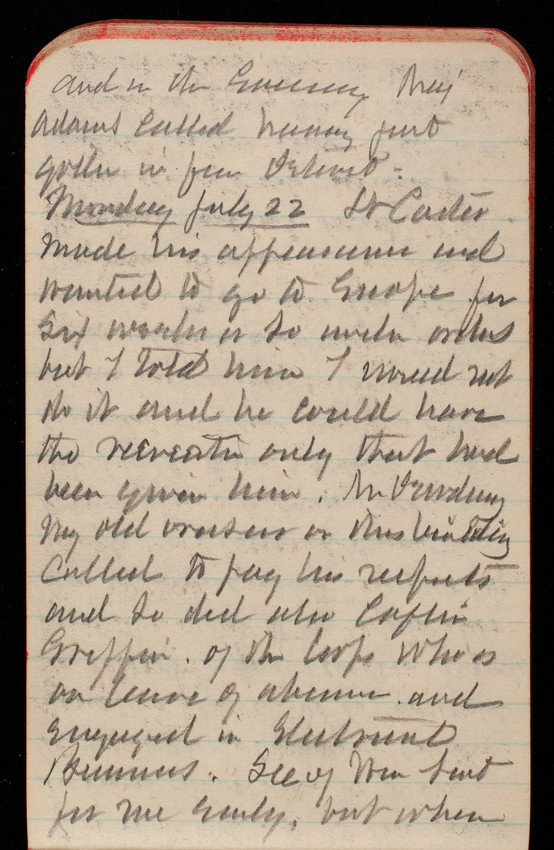 and in the evening Maj
Adams called having just
gotten in from Detroit.
Monday July 22 Lt Carter
made his appearance and
wanted to go to Europe for
six weeks or so under orders
but I told him I would not
do it and he could have
the recreation only that had
been given him. Mr
my old on this
called to pay his respects
and so did also Captn
Griffin. of the Corps who is
on leave of absence and
engaged in Electrical
Business. Secy of War sent
for me early, but when